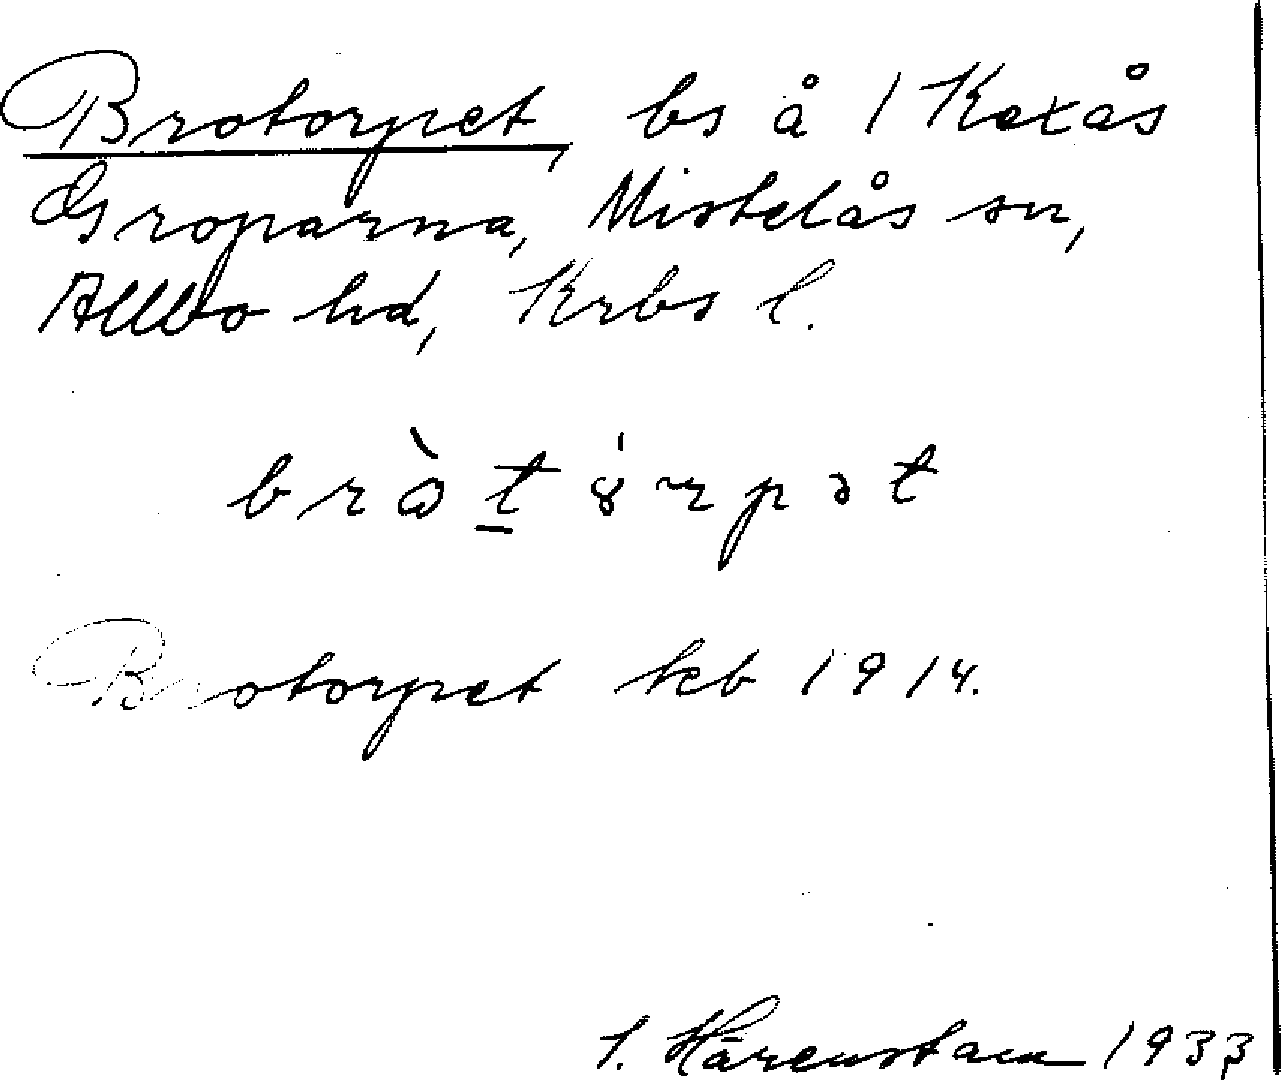 Brotorpet, bs å 1 Kexås
Groparna, Mistelås sn,
Allbo hd, Krbs l.
Brotorpet kb 1914.
Härenstam 1933